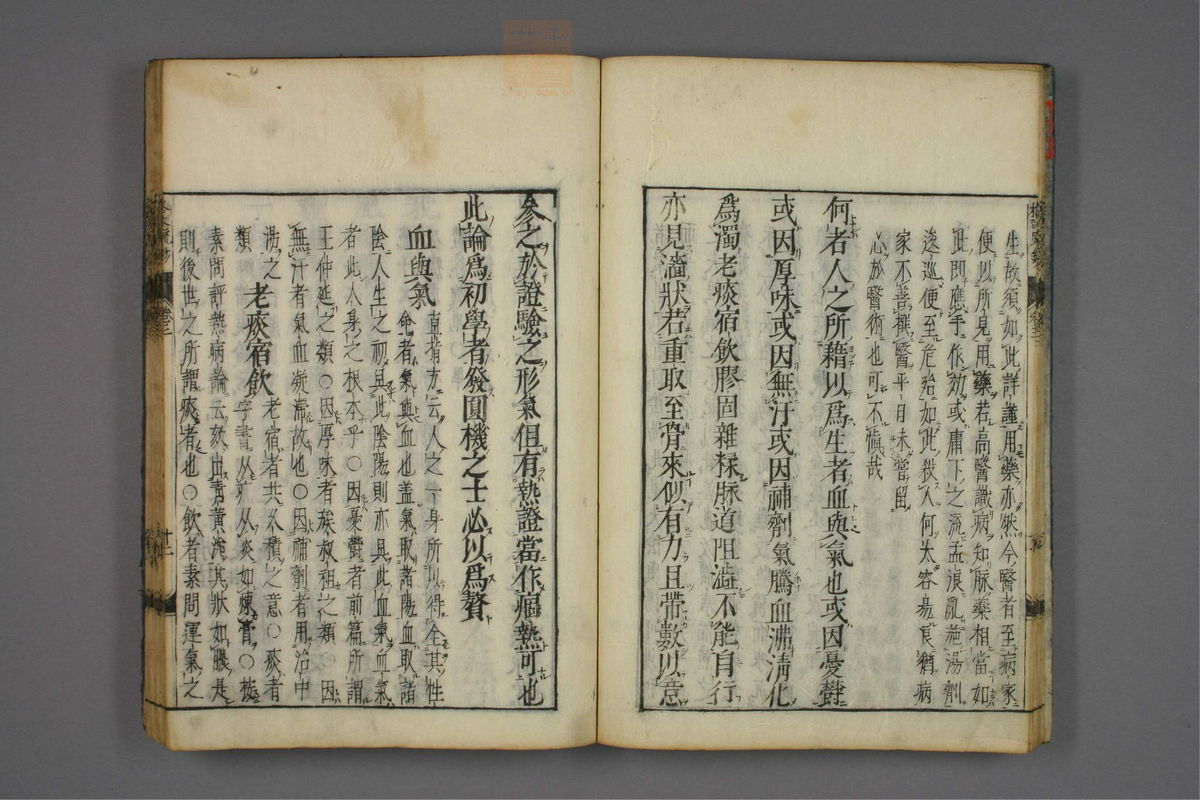 生故須如此詳謹用藥亦然今醫者至病家
便以所見用藥若高醫識病知脉藥相當如
此即應手作効或庸下之流孟浪亂施湯劑
逡巡便至危殆如此殺人何太容易良猶病
家不善撰醫平日未嘗留
心於醫術也可不慎哉
何者人之所藉以爲生者血與氣也或因憂鬱
或因厚味或因無汗或因補劑氣騰血沸淸化
爲濁老痰宿飲膠固雜糅脉道阻澁不能自行
亦見濇狀若重取至骨來似有力且帶數以意
參之於證驗之形氣但有熱證當作痼熱可也
此論爲初學者發圓機之士必以爲贅
血與氣
直指方云人之一身所以得全其性
命者氣與血也盖氣取諸陽血取諸
陰人生之初具此陰陽則亦具此血氣血氣
者此人身之根本乎○因憂鬱者前篇所謂
王仲延之類○因厚味者族叔祖之類○因
無汗者氣血凝滯故也○因補劑者用治中
湯之類
老痰宿飲
老宿者共久積之意○痰者
字書从疒从炎如煉膏○
素問評熱病論云欬出靑黃涕其狀如膿是
則後世之所謂痰者也○飲者素問運氣之